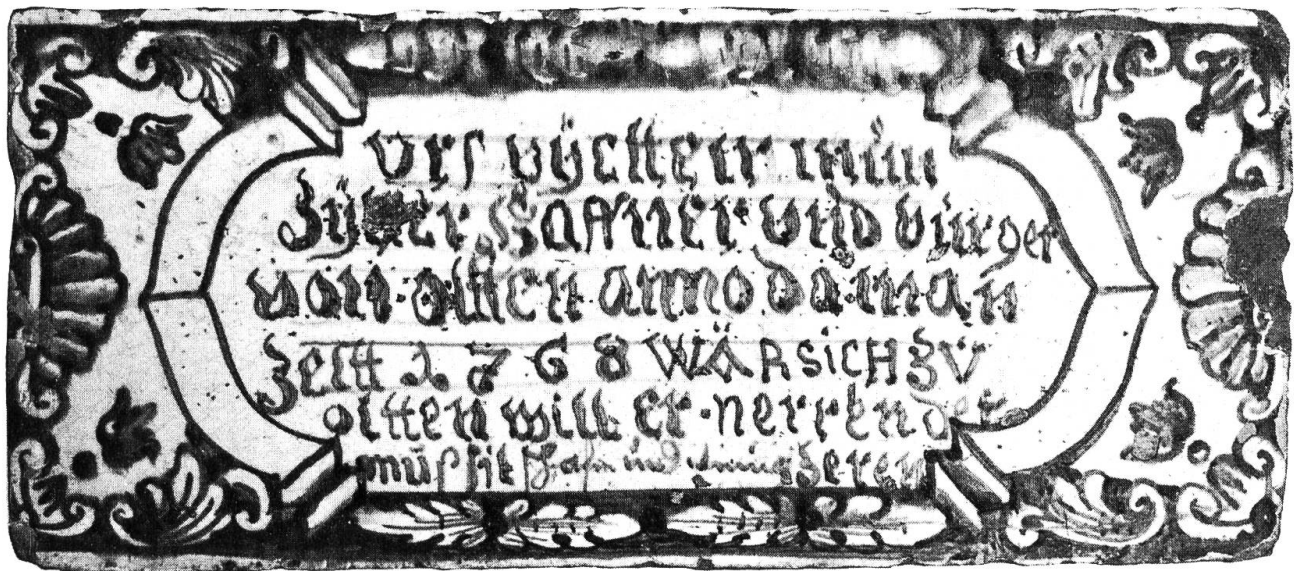 urs vÿcttetr min
Haffner und burger
von oltten anno da man
zeltt 1768 WÄR SICH ZV
oltten will er nerren der
müs sit und wenig zeren